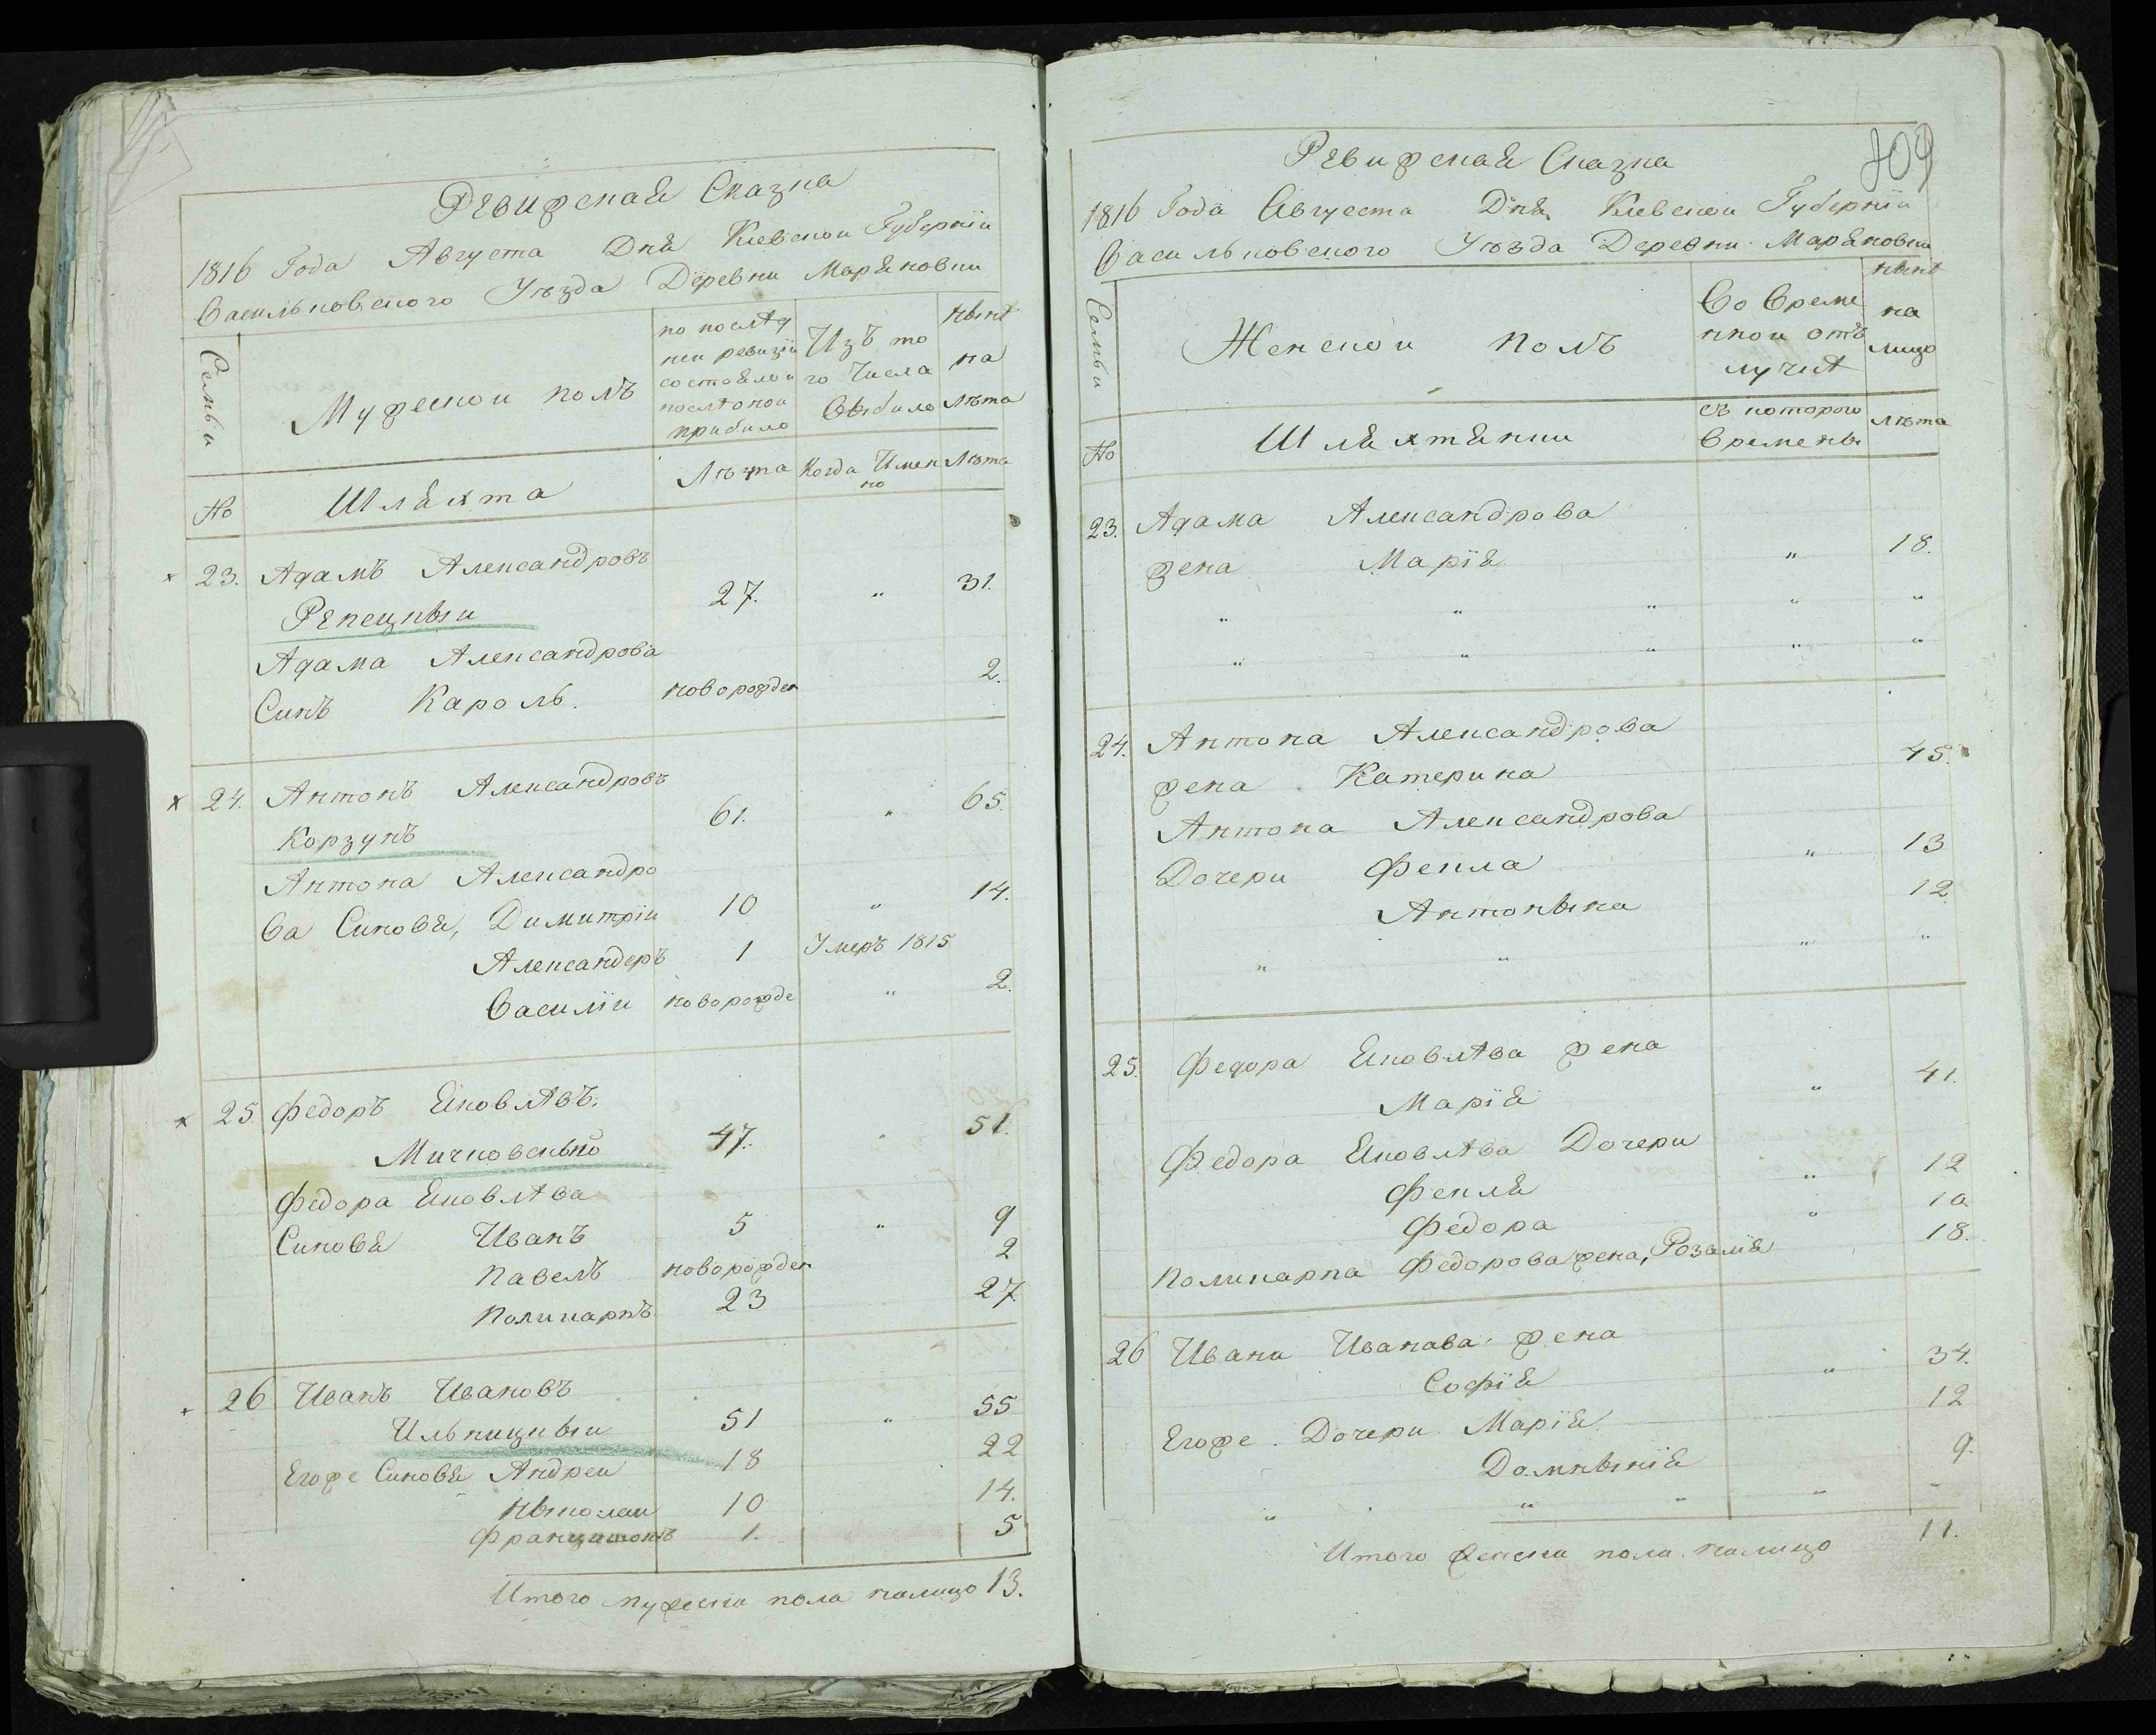 Ревизская Сказка
1816 Года Августа Дня Киевской Губернїи
Васильковского Уѣзда Деревни Маряновки
Семьи
Мужеской полъ
по послѣд
ней ревизїи
состояло и
послѣ оной
прибило
Изъ то
го Числа
Выбило
нынѣ
на
лѣта
№
Шляхта
Лѣта
Когда Имен
но
Лѣта
23. Адамъ Александровъ
Репецкый 27. " 31.
Адама Александрова
Синъ Кароль. новорожден 2.
24. Антонъ Александровъ
Корзунъ 61. " 65.
Антона Александро
ва Синовя, Димитрїй 10 " 14.
Александеръ 1 Умеръ 1815
Василїй новорожде " 2.
25. Федоръ Яковлѣвъ.
Мичковскый 47. " 51.
Федора Яковлѣва
Синовя Иванъ 5 " 9
Павелъ новорожден 2
Поликарпъ 23 27.
26 Иванъ Ивановъ
Ильницкый 51 " 55
Егоже Синовя Андрей 18 22
Ныколай 10 14.
Францишокъ 1. 5
Итого мужеска пола налицо 13.
409
Ревизская Сказка
1816 Года Августа Дня Киевской Губернїи
Васильковского Уѣзда Деревни Маряновки
Семьи
Женской полъ
Во Време
нной отъ
лучкѣ
нынѣ
на
лицо
№
Шляхтянки
съ которого
Времены
лѣта
23. Адама Александрова
жена Марїя " 18.
" " " " "
" " " " "
24. Антона Александрова
жена Катерина 45.
Антона Александрова
Дочери Фекла " 13
Антонына 12
" " " "
25. Федора Яковлѣва жена
Марїя " 41.
Федора Яковлѣва Дочери
Фекля " 12
Федора " 10
Поликарпа Федорова жена, Розалїя 18.
26 Ивана Иванава жена
Софїя " 34.
Егоже Дочери Марїя 12
Домныкїя 9.
" " " " "
Итого женска пола налицо 11.